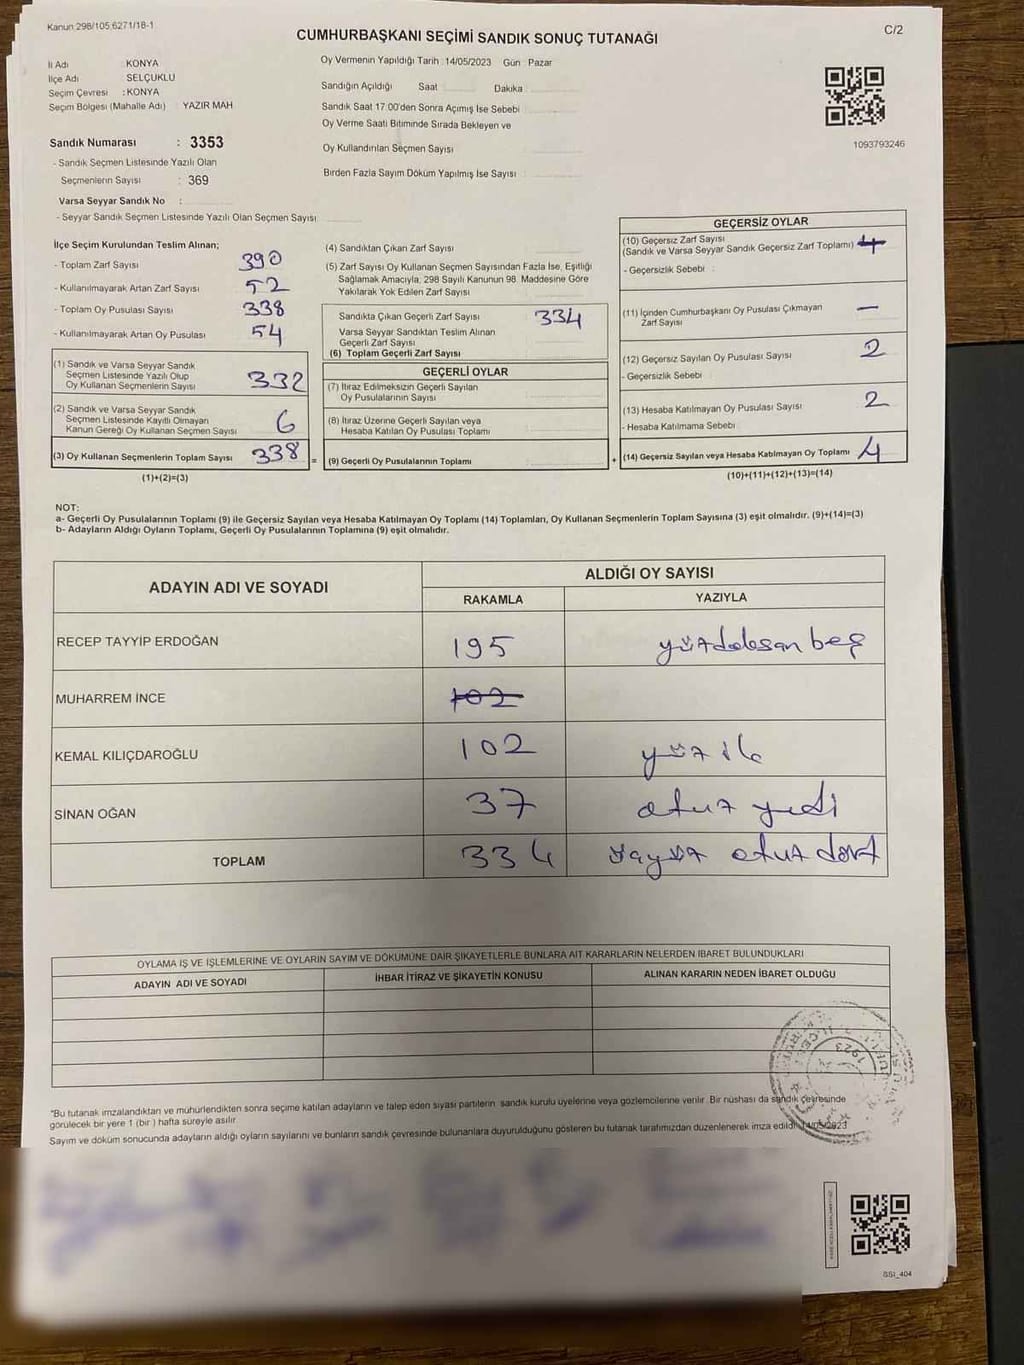 Kanun 298/105,6271/18-1
C/2
CUMHURBAŞKANI SEÇİMİ SANDIK SONUÇ TUTANAĞI
İl Adı : KONYA
İlçe Adı : SELÇUKLU
Seçim Çevresi : KONYA
Seçim Bölgesi (Mahalle Adı) : YAZIR MAH
Sandık Numarası : 3353
- Sandık Seçmen Listesinde Yazılı Olan
Seçmenlerin Sayısı : 369
Varsa Seyyar Sandık No :
- Seyyar Sandık Seçmen Listesinde Yazılı Olan Seçmen Sayısı
Oy Vermenin Yapıldığı Tarih : 14/05/2023 Gün : Pazar
Sandığın Açıldığı Saat Dakika
Sandık Saat 17:00'den Sonra Açımış İse Sebebi
Oy Verme Saati Bitiminde Sırada Bekleyen ve
Oy Kullandırılan Seçmen Sayısı
Birden Fazla Sayım Döküm Yapılmış İse Sayısı :
1093793246
İlçe Seçim Kurulundan Teslim Alınan;
- Toplam Zarf Sayısı 390
- Kullanılmayarak Artan Zarf Sayısı 52
- Toplam Oy Pusulası Sayısı 338
- Kullanılmayarak Artan Oy Pusulası 54
(1) Sandık ve Varsa Seyyar Sandık
Seçmen Listesinde Yazılı Olup
Oy Kullanan Seçmenlerin Sayısı 332
(2) Sandık ve Varsa Seyyar Sandık
Seçmen Listesinde Kayıtlı Olmayan
Kanun Gereği Oy Kullanan Seçmen Sayısı 6
(3) Oy Kullanan Seçmenlerin Toplam Sayısı 338 =
(1)+(2)=(3)
(4) Sandıktan Çıkan Zarf Sayısı
(5) Zarf Sayısı Oy Kullanan Seçmen Sayısından Fazla İse, Eşitliği
Sağlamak Amacıyla, 298 Sayılı Kanunun 98. Maddesine Göre
Yakılarak Yok Edilen Zarf Sayısı
Sandıkta Çıkan Geçerli Zarf Sayısı 334
Varsa Seyyar Sandıktan Teslim Alınan
Geçerli Zarf Sayısı
(6) Toplam Geçerli Zarf Sayısı
GEÇERLİ OYLAR
(7) İtiraz Edilmeksizin Geçerli Sayılan
Oy Pusulalarının Sayısı
(8) İtiraz Üzerine Geçerli Sayılan veya
Hesaba Katılan Oy Pusulası Toplamı
(9) Geçerli Oy Pusulalarının Toplamı +
GEÇERSİZ OYLAR
(10) Geçersiz Zarf Sayısı
(Sandık ve Varsa Seyyar Sandık Geçersiz Zarf Toplamı) 4
- Geçersizlik Sebebi :
(11) İçinden Cumhurbaşkanı Oy Pusulası Çıkmayan
Zarf Sayısı —
(12) Geçersiz Sayılan Oy Pusulası Sayısı 2
- Geçersizlik Sebebi
(13) Hesaba Katılmayan Oy Pusulası Sayısı 2
- Hesaba Katılmama Sebebi
(14) Geçersiz Sayılan veya Hesaba Katılmayan Oy Toplamı 4
(10)+(11)+(12)+(13)=(14)
NOT:
a- Geçerli Oy Pusulalarının Toplamı (9) ile Geçersiz Sayılan veya Hesaba Katılmayan Oy Toplamı (14) Toplamları, Oy Kullanan Seçmenlerin Toplam Sayısına (3) eşit olmalıdır. (9)+(14)=(3)
b- Adayların Aldığı Oyların Toplamı, Geçerli Oy Pusulalarının Toplamına (9) eşit olmalıdır.
ADAYIN ADI VE SOYADI
ALDIĞI OY SAYISI
RAKAMLA YAZIYLA
RECEP TAYYİP ERDOĞAN 195 yüzdoksan beş
MUHARREM İNCE 102
KEMAL KILIÇDAROĞLU 102 yüz iki
SİNAN OĞAN 37 otuz yedi
TOPLAM 334 üçyüz otuz dört
OYLAMA İŞ VE İŞLEMLERİNE VE OYLARIN SAYIM VE DÖKÜMÜNE DAİR ŞİKAYETLERLE BUNLARA AİT KARARLARIN NELERDEN İBARET BULUNDUKLARI
ADAYIN ADI VE SOYADI İHBAR İTİRAZ VE ŞİKAYETİN KONUSU ALINAN KARARIN NEDEN İBARET OLDUĞU
1923
"Bu tutanak imzalandıktan ve mühürlendikten sonra seçime katılan adayların ve talep eden siyasi partilerin sandık kurulu üyelerine veya gözlemcilerine verilir. Bir nüshası da sandık çevresinde
görülecek bir yere 1 (bir ) hafta süreyle asılır.
Sayım ve döküm sonucunda adayların aldığı oyların sayılarını ve bunların sandık çevresinde bulunanlara duyurulduğunu gösteren bu tutanak tarafımızdan düzenlenerek imza edildi. 14/05/2023
SSI_404